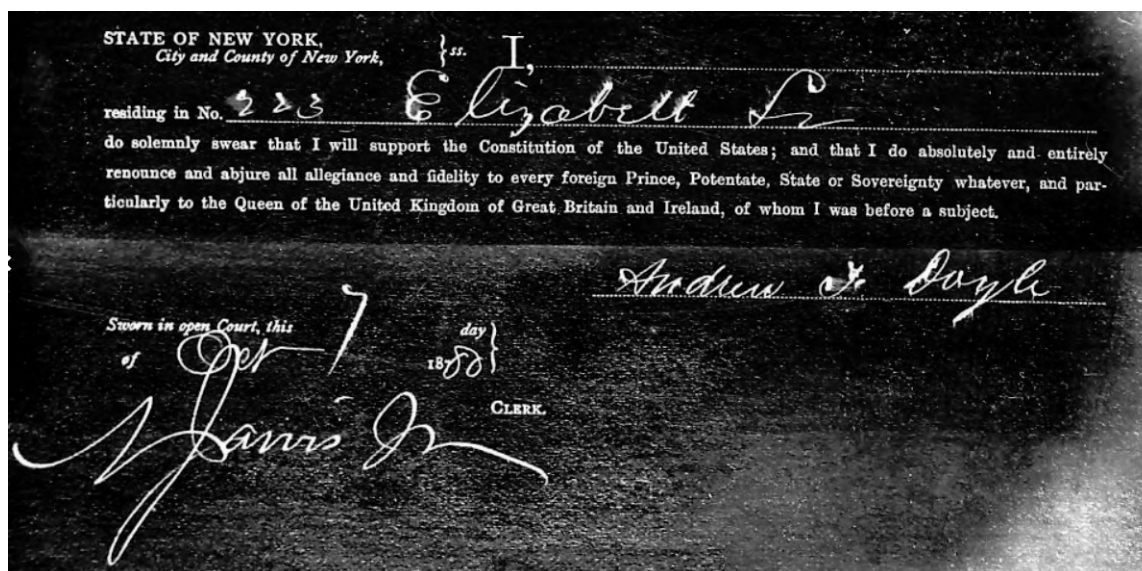 STATE OF NEW YORK,
City and County of New York, } ss. I,
residing in No. 223 Elizabett St
do solemnly swear that I will support the Constitution of the United States; and that I do absolutely and entirely
renounce and abjure all allegiance and fidelity to every foreign Prince, Potentate, State or Sovereignty whatever, and par-
ticularly to the Queen of the United Kingdom of Great Britain and Ireland, of whom I was before a subject.
Andrew F. Doyle
Sworn in open Court, this 7 day
of Oct 1880
CLERK.
N Jarvis Jr